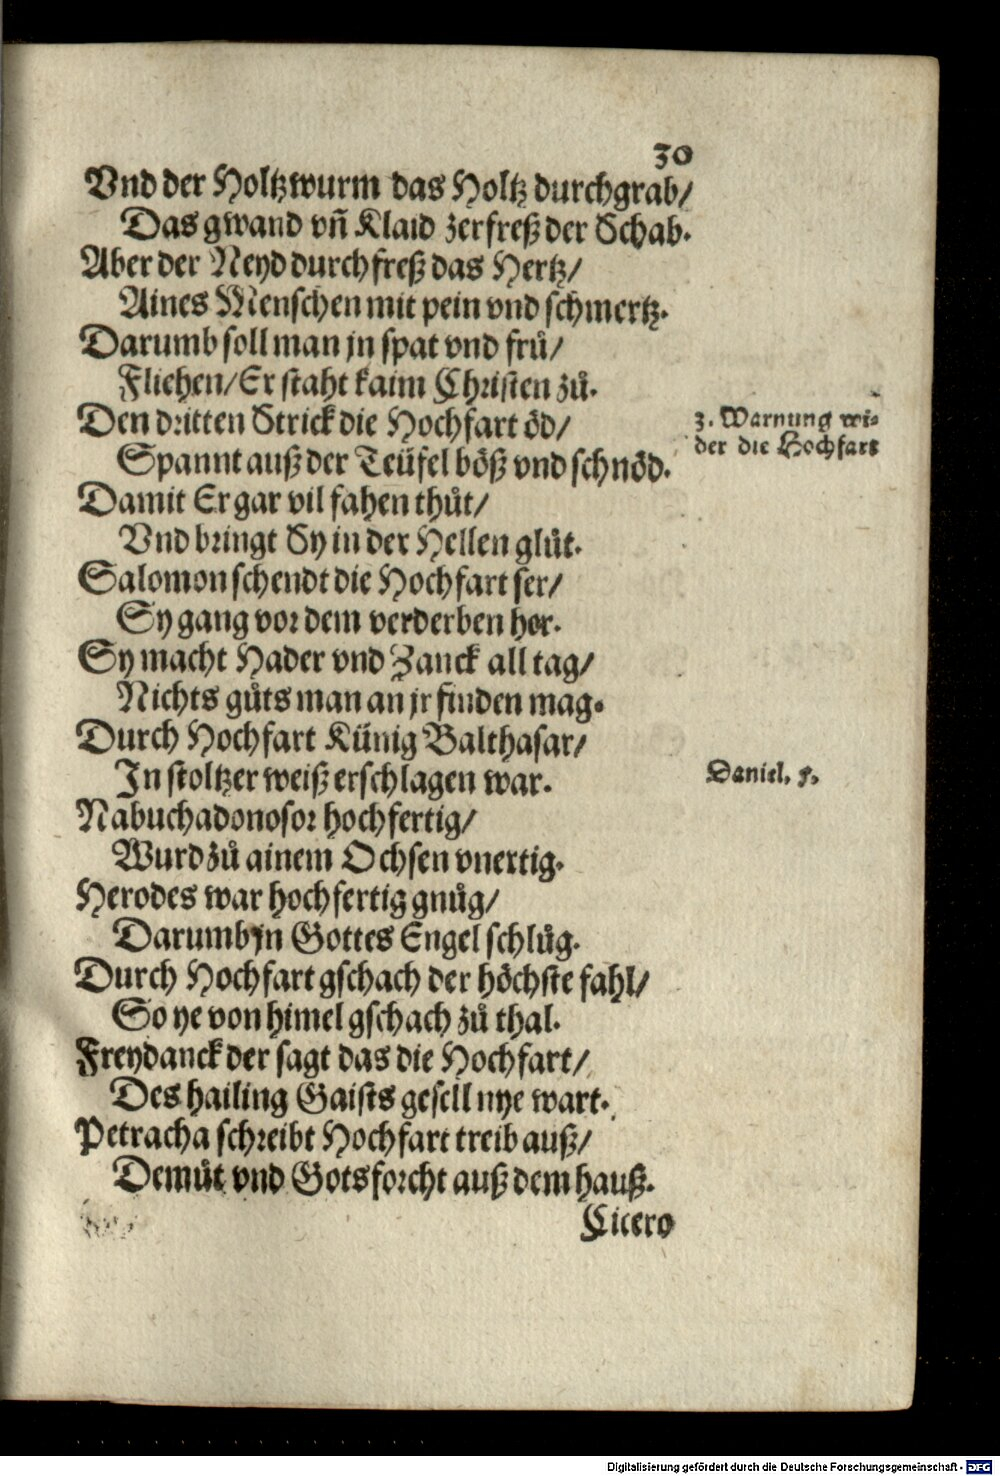 30
Vnd der Holtzwurm das Holtz durchgrab/
Das gwand vñ Klaid zerfreß der Schab.
Aber der Neyd durchfreß das Hertz/
Aines Menschen mit pein vnd schmertz.
Darumb soll man jn spat vnd frů/
Fliehen/Er staht kaim Christen zů.
Den dritten Strick die Hochfart öd/
3. Warnung wi-
der die Hochfart
Spannt auß der Teüfel böß vnd schnöd.
Damit Er gar vil fahen thůt/
Vnd bringt Sy in der Hellen glůt.
Salomon schendt die Hochfart ser/
Sy gang vor dem verderben her.
Sy macht Hader vnd Zanck all tag/
Nichts gůts man an jr finden mag.
Durch Hochfart Künig Balthasar/
In stoltzer weiß erschlagen war.
Daniel. 5.
Nabuchadonosor hochfertig/
Wurd zů ainem Ochsen vnertig.
Herodes war hochfertig gnůg/
Darumb jn Gottes Engel schlůg.
Durch Hochfart gschach der höchste fahl/
So ye von himel gschach zů thal.
Freydanck der sagt das die Hochfart/
Des hailing Gaists gesell nye wart.
Petracha schreibt Hochfart treib auß/
Demůt vnd Gotsforcht auß dem hauß.
Cicero
Digitalisierung gefördert durch die Deutsche Forschungsgemeinschaft - DFG